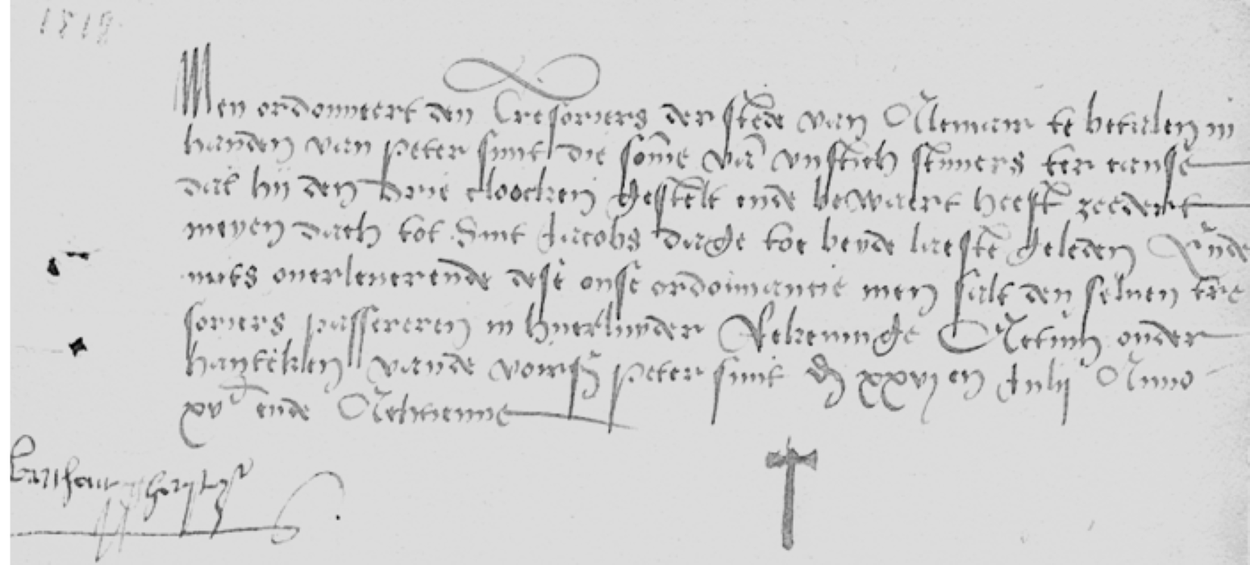 1518
Men ordonneert den Tresoriers der stede van Alcmair te betalen in
handen van peter smit die some va vijftich stuvers ter cause
dat hij den drie cloocken gestelt ende bewaert heeft zeedert
meyen dach tot Sint Jacobs daghe toe beyde laeste geleden Ende
mits overleverende dese onse ordonnancie men salt den selven tre
soriers passeren in huerluyder Rekeninge Actum onder
hantekken vande voirs peter smit den xxvj en Julij Anno
xvc ende Achtienne